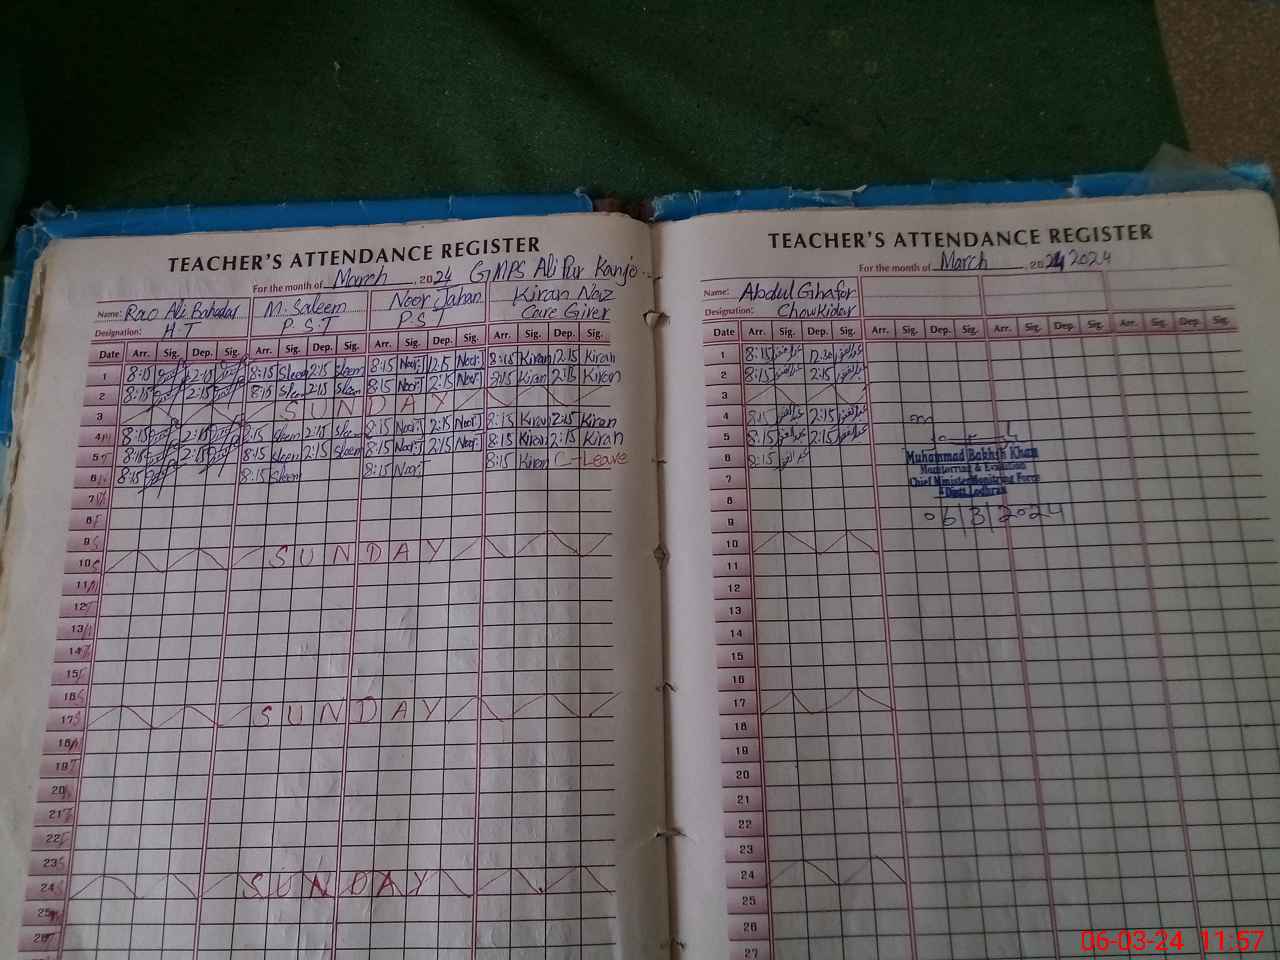 TEACHER'S ATTENDANCE REGISTER
For the month of March , 2024 GMPS Ali Pur Kanjo
Name: Rao Ali Bahadar M. Saleem Noor Jahan Kiran Naiz
Designation: H.T P.S.T P.S.T Care Giver
Date Arr. Sig. Dep. Sig. Arr. Sig. Dep. Sig. Arr. Sig. Dep. Sig. Arr. Sig. Dep. Sig.
1 8:15 2:15 8:15 Sleem 2:15 Sleem 8:15 Noor.J 12:15 Noor.J 8:15 Kiran 2:15 Kiran
2 8:15 2:15 8:15 Sleem 2:15 Sleem 8:15 Noor.J 2:15 Noor.J 8:15 Kiran 2:15 Kiran
3 SUNDAY
4 8:15 2:15 Sleem 2:15 Sleem 8:15 Noor.J 2:15 Noor.J 8:15 Kiran 2:15 Kiran
5 8:15 2:15 8:15 Sleem 2:15 Sleem 8:15 Noor.J 2:15 Noor.J 8:15 Kiran 2:15 Kiran
6 8:15 8:15 Sleem 8:15 Noor.J 8:15 Kiran C-Leave
7
8
9
10 SUNDAY
11
12
13
14
15
16
17 SUNDAY
18
19
20
21
22
23
24 SUNDAY
25
26
TEACHER'S ATTENDANCE REGISTER
For the month of March , 2024 2024
Name: Abdul Ghafar
Designation: Chowkidar
Date Arr. Sig. Dep. Sig. Arr. Sig. Dep. Sig. Arr. Sig. Dep. Sig. Arr. Sig. Dep. Sig.
1 8:15 12:30
2 8:15 2:15
3
4 8:15 2:15
5 8:15 2:15
6 8:15
7
8
9
10
11
12
13
14
15
16
17
18
19
20
21
22
23
24
25
26
27
Muhammad Bakhsh Khan
Monitoring & Evaluation
Chief Minister Monitoring Force
Distt. Lodhran
06/3/2024
06-03-24 11:57